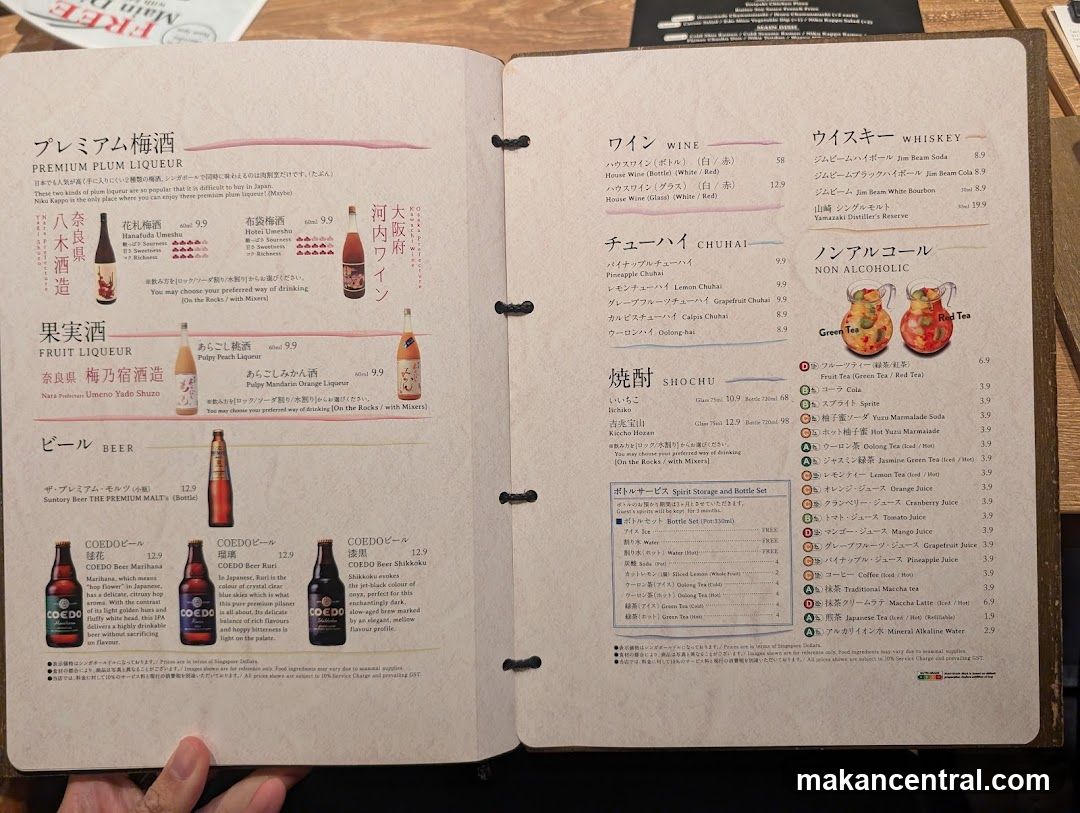 FREE
Main D
with
Teriyaki Chicken Pizza
MAIN DISH
プレミアム梅酒
PREMIUM PLUM LIQUEUR
日本でも人気が高く手に入りにくい2種類の梅酒、シンガポールで同時に味わえるのは肉割烹だけです。(たぶん)
These two kinds of plum liqueur are so popular that it is difficult to buy in Japan.
Niku Kappo is the only place where you can enjoy these premium plum liqueur! (Maybe)
奈良県
八木酒造
Nara Prefecture
Yagi Shuzo
花札梅酒 60ml 9.9
Hanafuda Umeshu
酸っぱさ Sourness
甘さ Sweetness
コク Richness
布袋梅酒 60ml 9.9
Hotei Umeshu
酸っぱさ Sourness
甘さ Sweetness
コク Richness
大阪府
河内ワイン
Osaka Prefecture
※飲み方を[ロック/ソーダ割り/水割り]からお選びください。
You may choose your preferred way of drinking
[On the Rocks / with Mixers]
果実酒
FRUIT LIQUEUR
奈良県 梅乃宿酒造
Nara Prefecture Umeno Yado Shuzo
あらごし桃酒 60ml 9.9
Pulpy Peach Liqueur
あらごしみかん酒 60ml 9.9
Pulpy Mandarin Orange Liqueur
※飲み方を[ロック/ソーダ割り/水割り]からお選びください。
You may choose your preferred way of drinking [On the Rocks / with Mixers]
ビール BEER
ザ・プレミアム・モルツ (小瓶) 12.9
Suntory Beer THE PREMIUM MALT's (Bottle)
COEDOビール
毬花 12.9
COEDO Beer Marihana
Marihana, which means
"hop flower" in Japanese,
has a delicate, citrusy hop
aroma. With the contrast
of its light golden hues and
fluffy white head, this IPA
delivers a highly drinkable
beer without sacrificing
on flavour.
COEDO
COEDOビール
瑠璃 12.9
COEDO Beer Ruri
In Japanese, Ruri is the
colour of crystal clear
blue skies which is what
this pure premium pilsner
is all about. Its delicate
balance of rich flavours
and hoppy bitterness is
light on the palate.
COEDO
COEDOビール
漆黒 12.9
COEDO Beer Shikkoku
Shikkoku evokes
the jet-black colour of
onyx, perfect for this
enchantingly dark,
slow-aged brew marked
by an elegant, mellow
flavour profile.
COEDO
●表示価格はシンガポールドルになっております。/ Prices are in terms of Singapore Dollars.
●食材の都合により、商品は写真と異なることがございます。/ Images shown are for reference only. Food ingredients may vary due to seasonal supplies.
●当店では、料金に対して10%のサービス料と現行の消費税を別途いただいております。/ All prices shown are subject to 10% Service Charge and prevailing GST.
ワイン WINE
ハウスワイン(ボトル) (白 / 赤) 58
House Wine (Bottle) (White / Red)
ハウスワイン(グラス) (白 / 赤) 12.9
House Wine (Glass) (White / Red)
チューハイ CHUHAI
パイナップルチューハイ 9.9
Pineapple Chuhai
レモンチューハイ Lemon Chuhai 9.9
グレープフルーツチューハイ Grapefruit Chuhai 9.9
カルピスチューハイ Calpis Chuhai 8.9
ウーロンハイ Oolong-hai 8.9
焼酎 SHOCHU
いいちこ Glass 75ml 10.9 Bottle 720ml 68
Iichiko
吉兆宝山 Glass 75ml 12.9 Bottle 720ml 98
Kiccho Hozan
※飲み方を[ロック/水割り]からお選びください。
You may choose your preferred way of drinking
[On the Rocks / with Mixers]
ボトルサービス Spirit Storage and Bottle Set
ボトルのお預かり期間は3ヶ月とさせていただきます。
Guest's spirits will be kept for 3 months.
■ボトルセット Bottle Set (Pot:330ml)
アイス Ice FREE
割り水 Water FREE
割り水(ホット) Water (Hot) FREE
炭酸 Soda (Pot) 4
カットレモン(1個) Sliced Lemon (Whole Fruit) 2
ウーロン茶(アイス) Oolong Tea (Cold) 4
ウーロン茶(ホット) Oolong Tea (Hot) 4
緑茶(アイス) Green Tea (Cold) 4
緑茶(ホット) Green Tea (Hot) 4
●表示価格はシンガポールドルになっております。/ Prices are in terms of Singapore Dollars.
●食材の都合により、商品は写真と異なることがございます。/ Images shown are for reference only. Food ingredients may vary due to seasonal supplies.
●当店では、料金に対して10%のサービス料と現行の消費税を別途いただいております。/ All prices shown are subject to 10% Service Charge and prevailing GST.
ウイスキー WHISKEY
ジムビームハイボール Jim Beam Soda 8.9
ジムビームブラックハイボール Jim Beam Cola 8.9
ジムビーム Jim Beam White Bourbon 30ml 8.9
山崎 シングルモルト 30ml 19.9
Yamazaki Distiller's Reserve
ノンアルコール
NON ALCOHOLIC
Green Tea
Red Tea
D フルーツティー(緑茶/紅茶) 6.9
Fruit Tea (Green Tea / Red Tea)
B コーラ Cola 3.9
B スプライト Sprite 3.9
C 柚子蜜ソーダ Yuzu Marmalade Soda 3.9
C ホット柚子蜜 Hot Yuzu Marmalade 3.9
A ウーロン茶 Oolong Tea (Iced / Hot) 3.9
A ジャスミン緑茶 Jasmine Green Tea (Iced / Hot) 3.9
C レモンティー Lemon Tea (Iced / Hot) 3.9
C オレンジ・ジュース Orange Juice 3.9
C クランベリー・ジュース Cranberry Juice 3.9
B トマト・ジュース Tomato Juice 3.9
D マンゴー・ジュース Mango Juice 3.9
C グレープフルーツ・ジュース Grapefruit Juice 3.9
C パイナップル・ジュース Pineapple Juice 3.9
C コーヒー Coffee (Iced / Hot) 3.9
A 抹茶 Traditional Maccha tea 3.9
D 抹茶クリームラテ Maccha Latte (Iced / Hot) 6.9
A 煎茶 Japanese Tea (Iced / Hot) (Refillable) 1.9
A アルカリイオン水 Mineral Alkaline Water 2.9
makancentral.com